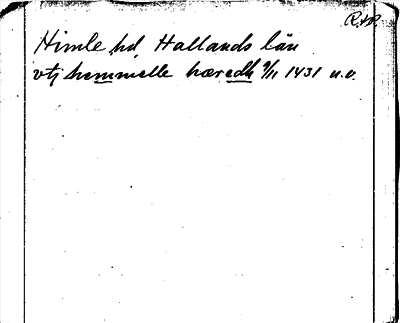 RAP.
Himle hd, Hallands län
vtj hemmelle hæredh 9/11 1431 u.o.